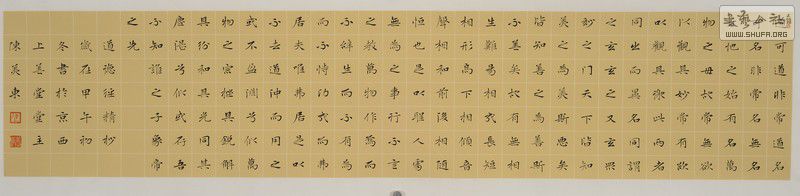 可道非常道名
可名非常名無名
地之始有名萬
物之母故常無欲
以觀其妙常有欲
以觀其徼此兩者
同出而異名同謂
之玄玄之又玄眾
妙之門天下皆知
美之為美斯惡矣
皆知善之為善斯
不善矣故有無相
生難易相成長短
相形高下相傾音
聲相和前後相隨
恒也是以聖人處
無為之事行不言
之教萬物作焉而
不辭生而不有為
而不恃功成而弗
居夫唯弗居是以
不去道沖而用之
或不盈淵兮似萬
物之宗挫其銳解
其紛和其光同其
塵湛兮似或存吾
不知誰之子象帝
之先
道德經精抄
歲在甲午初
冬書於京西
上善堂主
陳美東
WWW.SHUFA.ORG